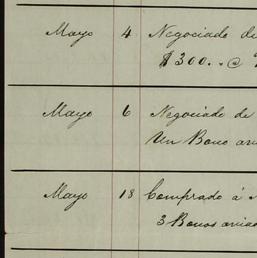 Mayo 4 Negociado de
$300.- @
Mayo 6 Negociado de
Un Bono
Mayo 18 Comprado á
3 Bonos